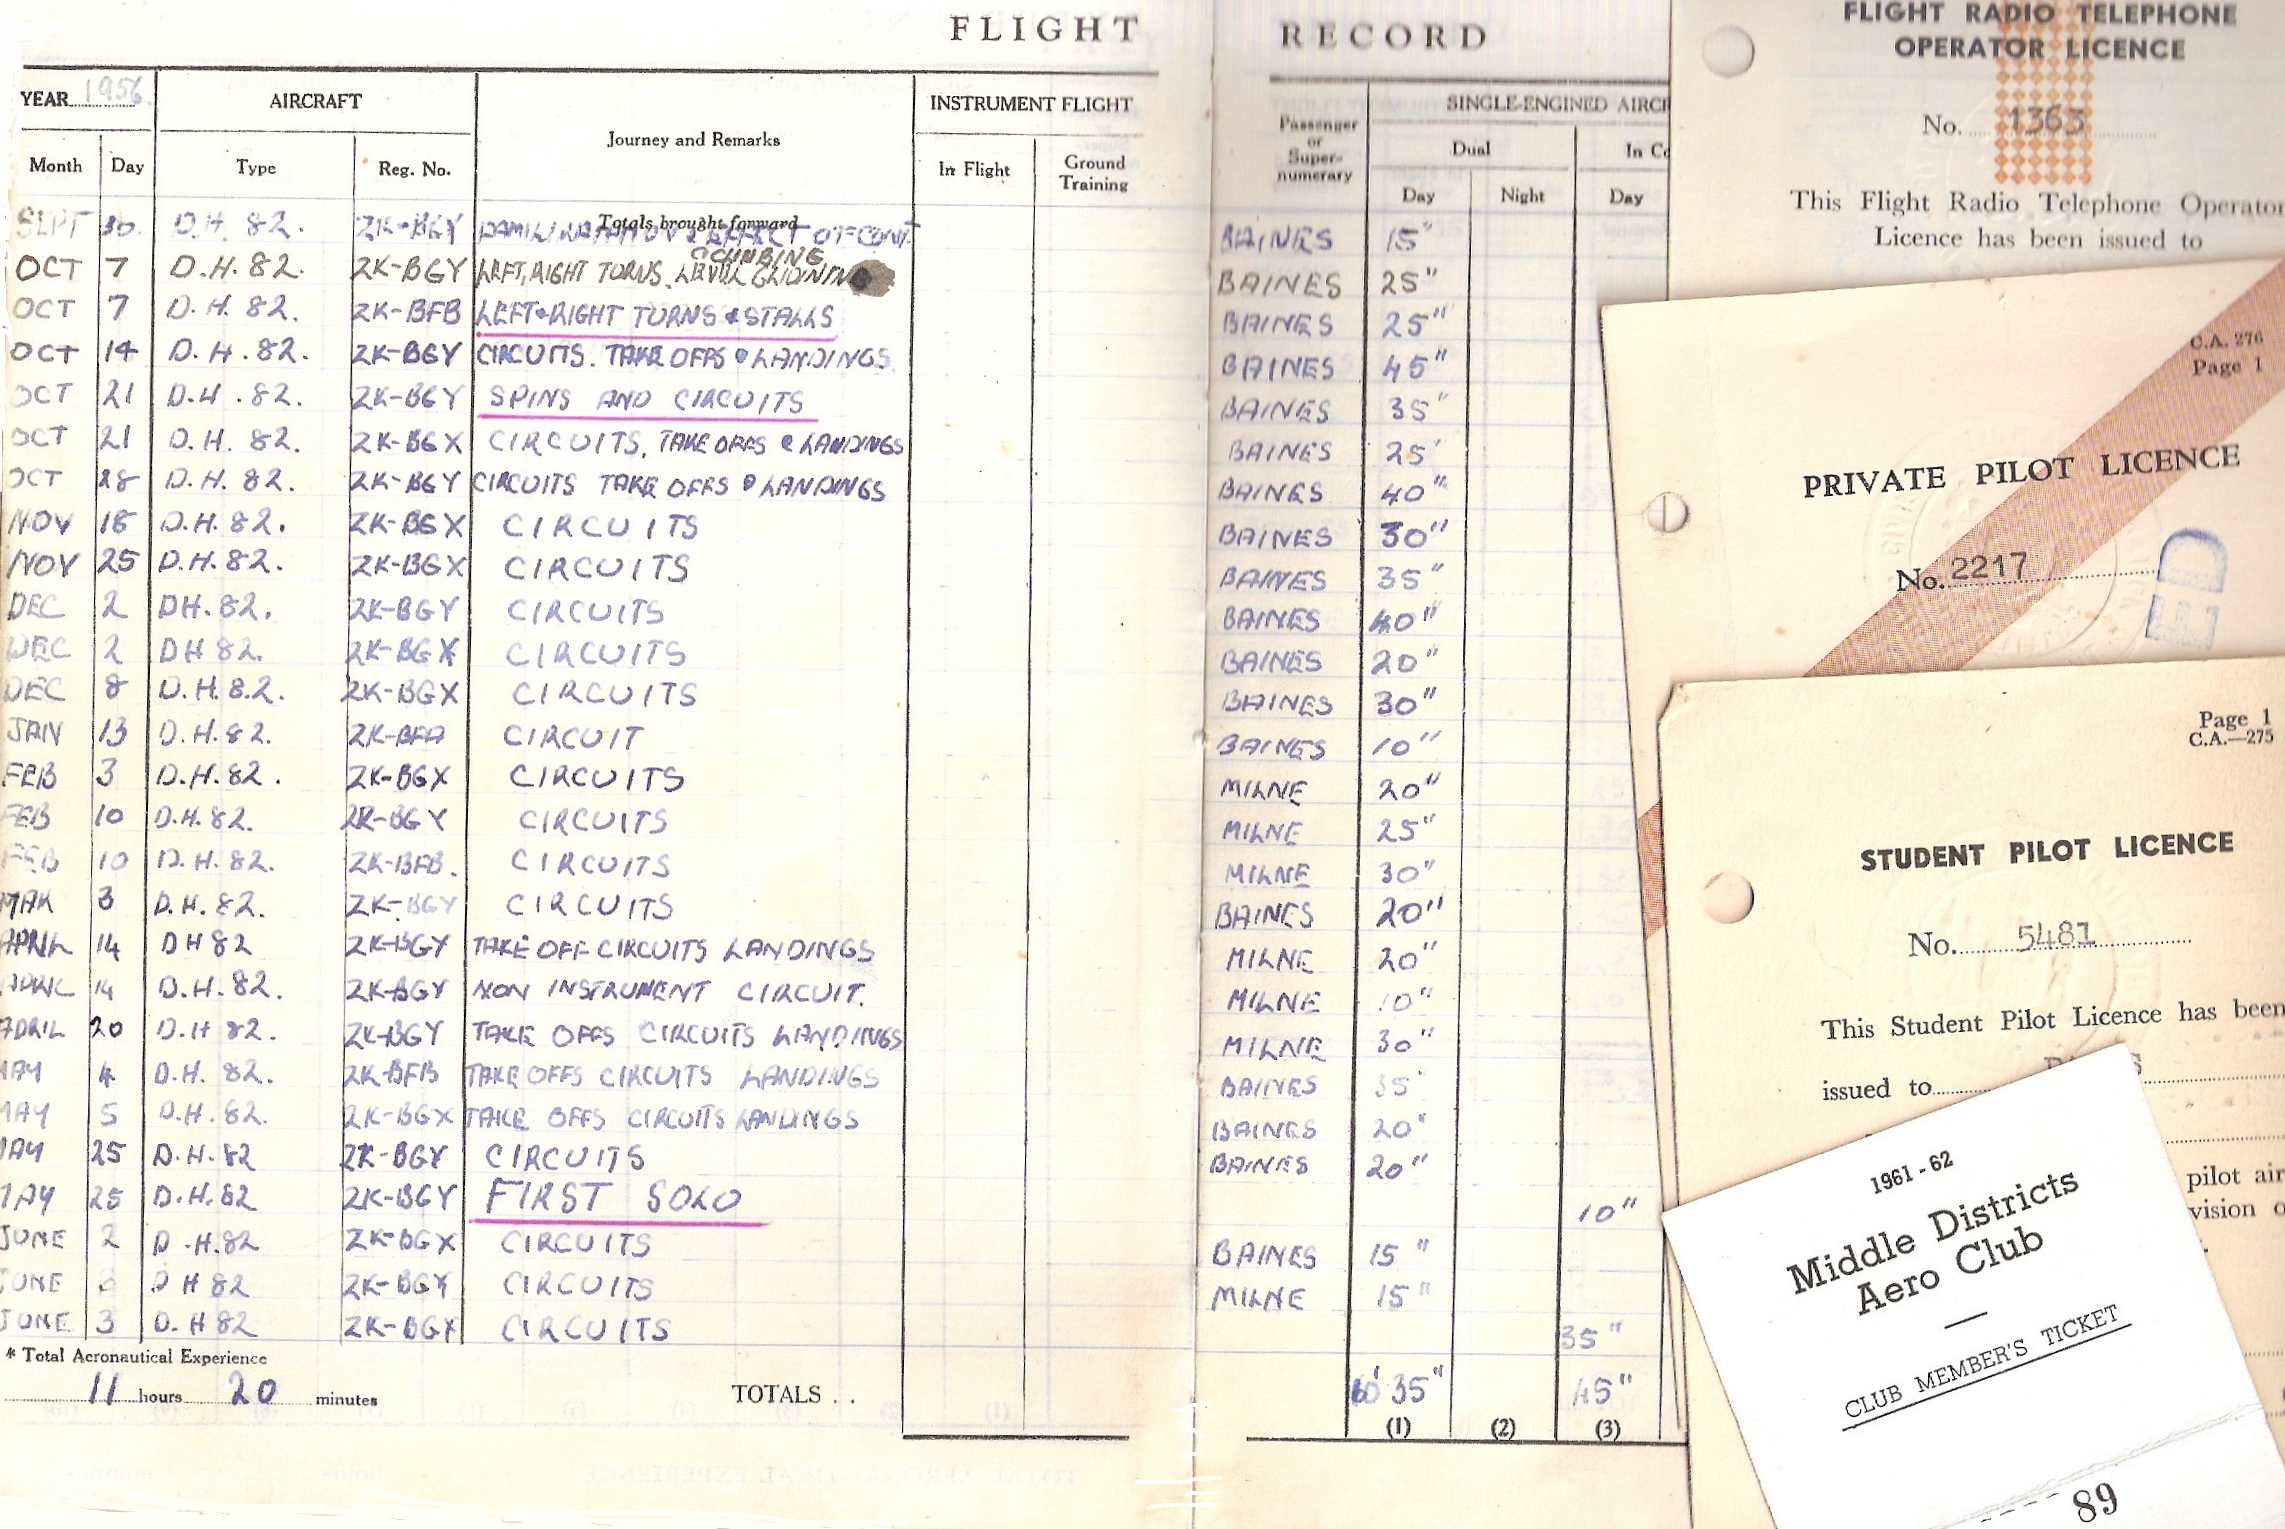 FLIGHT RECORD
YEAR 1956. AIRCRAFT Journey and Remarks INSTRUMENT FLIGHT Passenger or Super-numerary SINGLE-ENGINED
Month Day Type Reg. No. In Flight Ground Training Dual Day Night Day
Totals brought forward
SEPT 30. D.H. 82. ZK-BGY EFFECT OF CONT. BAINES 15"
CLIMBING
OCT 7 D.H. 82. ZK-BGY LEFT, RIGHT TURNS. LEVEL GLIDING BAINES 25"
OCT 7 D.H. 82. ZK-BFB LEFT & RIGHT TURNS & STALLS BAINES 25"
OCT 14 D.H. 82. ZK-BGY CIRCUITS. TAKE OFFS & LANDINGS. BAINES 45"
OCT 21 D.H. 82. ZK-BGY SPINS AND CIRCUITS BAINES 35"
OCT 21 D.H. 82. ZK-BGX CIRCUITS. TAKE OFFS & LANDINGS BAINES 25'
OCT 28 D.H. 82. ZK-BGY CIRCUITS TAKE OFFS & LANDINGS BAINES 40"
NOV 18 D.H. 82. ZK-BGX CIRCUITS BAINES 30"
NOV 25 D.H. 82. ZK-BGX CIRCUITS BAINES 35"
DEC 2 DH. 82. ZK-BGY CIRCUITS BAINES 40"
DEC 2 DH 82. ZK-BGX CIRCUITS BAINES 20"
DEC 8 D.H. 82. ZK-BGX CIRCUITS BAINES 30"
JAN 13 D.H. 82. ZK-BFA CIRCUIT BAINES 10"
FEB 3 D.H. 82. ZK-BGX CIRCUITS MILNE 20"
FEB 10 D.H. 82. ZK-BGY CIRCUITS MILNE 25"
FEB 10 D.H. 82. ZK-BFB. CIRCUITS MILNE 30"
MAR 3 D.H. 82. ZK-BGY CIRCUITS BAINES 20"
APRIL 14 DH 82 ZK-BGY TAKE OFF CIRCUITS LANDINGS MILNE 20"
APRIL 14 D.H. 82. ZK-BGY NON INSTRUMENT CIRCUIT. MILNE 10"
APRIL 20 D.H 82. ZK-BGY TAKE OFFS CIRCUITS LANDINGS MILNE 30"
MAY 4 D.H. 82. ZK-BFB TAKE OFFS CIRCUITS LANDINGS BAINES 35"
MAY 5 D.H. 82. ZK-BGX TAKE OFFS CIRCUITS LANDINGS BAINES 20"
MAY 25 D.H. 82 ZK-BGY CIRCUITS BAINES 20"
MAY 25 D.H. 82 ZK-BGY FIRST SOLO 10"
JUNE 2 D.H. 82 ZK-BGX CIRCUITS BAINES 15"
JUNE D H 82 ZK-BGY CIRCUITS MILNE 15"
JUNE 3 D. H 82 ZK-BGX CIRCUITS 35"
* Total Aeronautical Experience
11 hours 20 minutes TOTALS . . 10' 35" 45"
(1) (2) (3)
FLIGHT RADIO TELEPHONE
OPERATOR LICENCE
No. 1363
This Flight Radio Telephone Operator
Licence has been issued to
C.A. 276
Page 1
PRIVATE PILOT LICENCE
No. 2217
Page 1
C.A.—275
STUDENT PILOT LICENCE
No. 5481
This Student Pilot Licence has been
issued to
pilot
vision
1961-62
Middle Districts
Aero Club
CLUB MEMBER'S TICKET
89